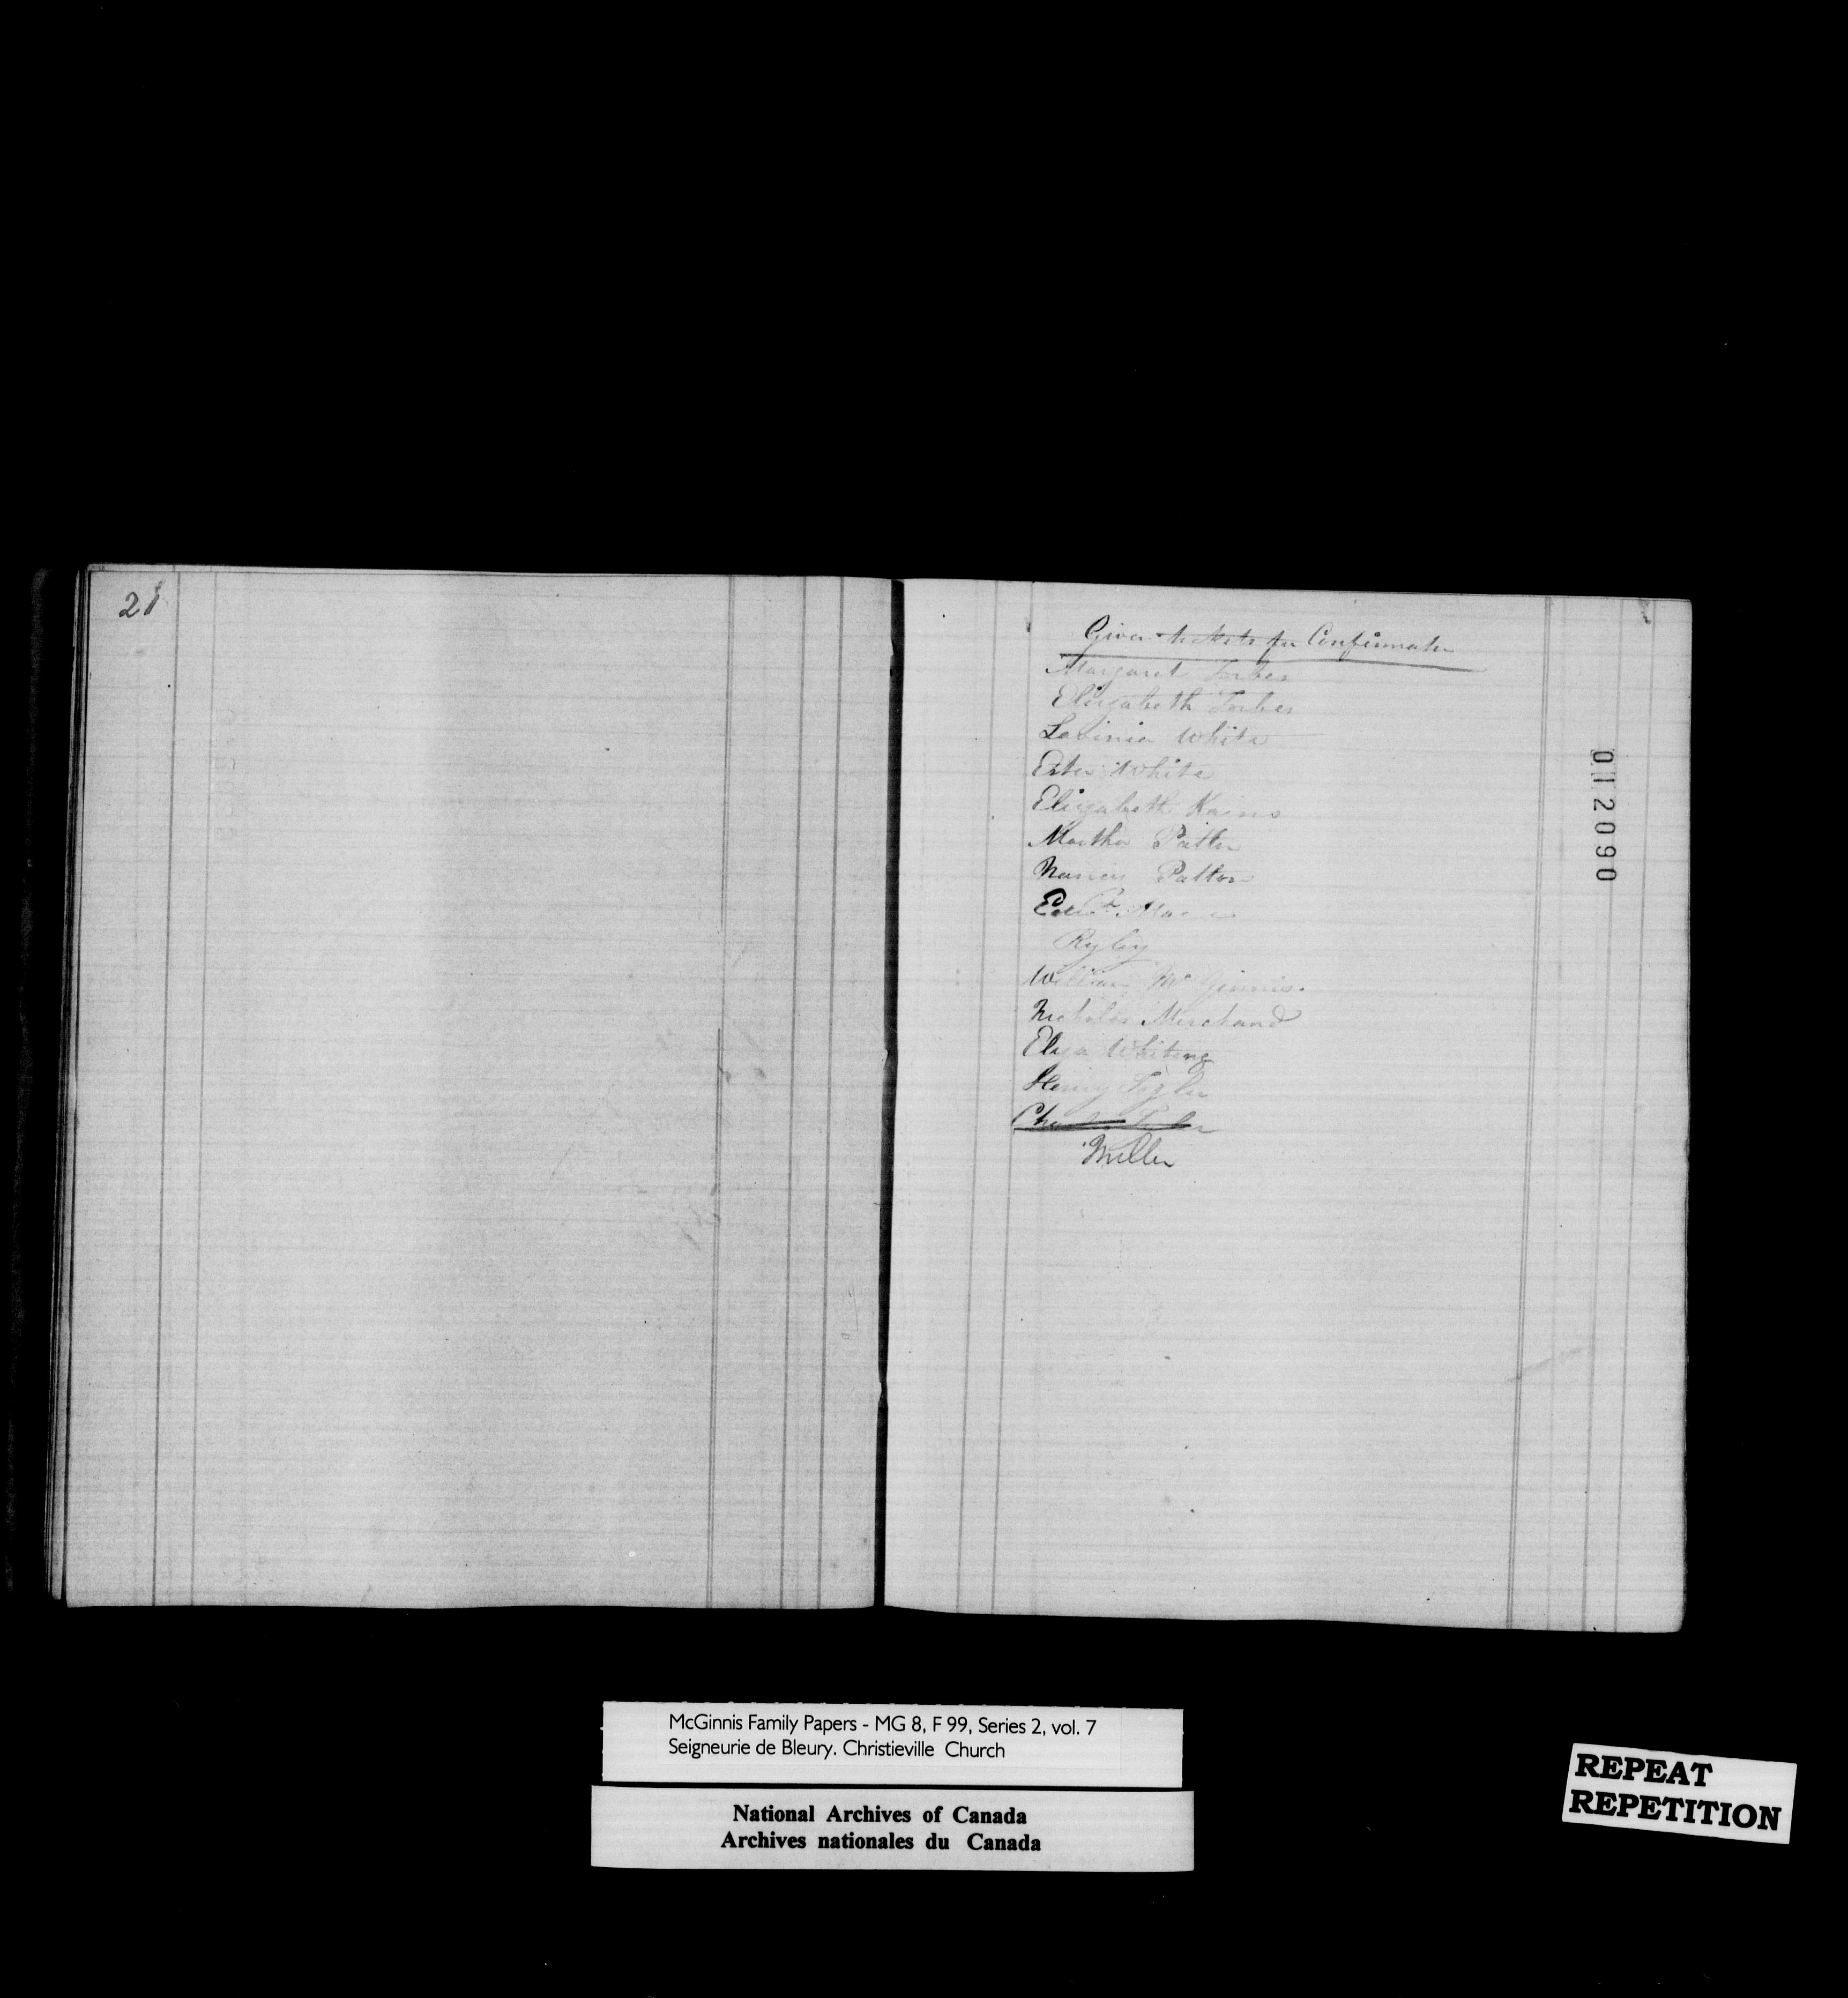 21
Given tickets for Confirmation
Margaret Forbes
Elizabeth Forbes
Lavinia White
Ester White
Elizabeth Kains
Martha Patton
Nancy Patton
Ryley
William McGinnis.
Nicholas Merchand
Eliza Whiting
Henry
Miller
012090
McGinnis Family Papers - MG 8, F 99, Series 2, vol. 7
Seigneurie de Bleury. Christieville Church
National Archives of Canada
Archives nationales du Canada
REPEAT
REPETITION